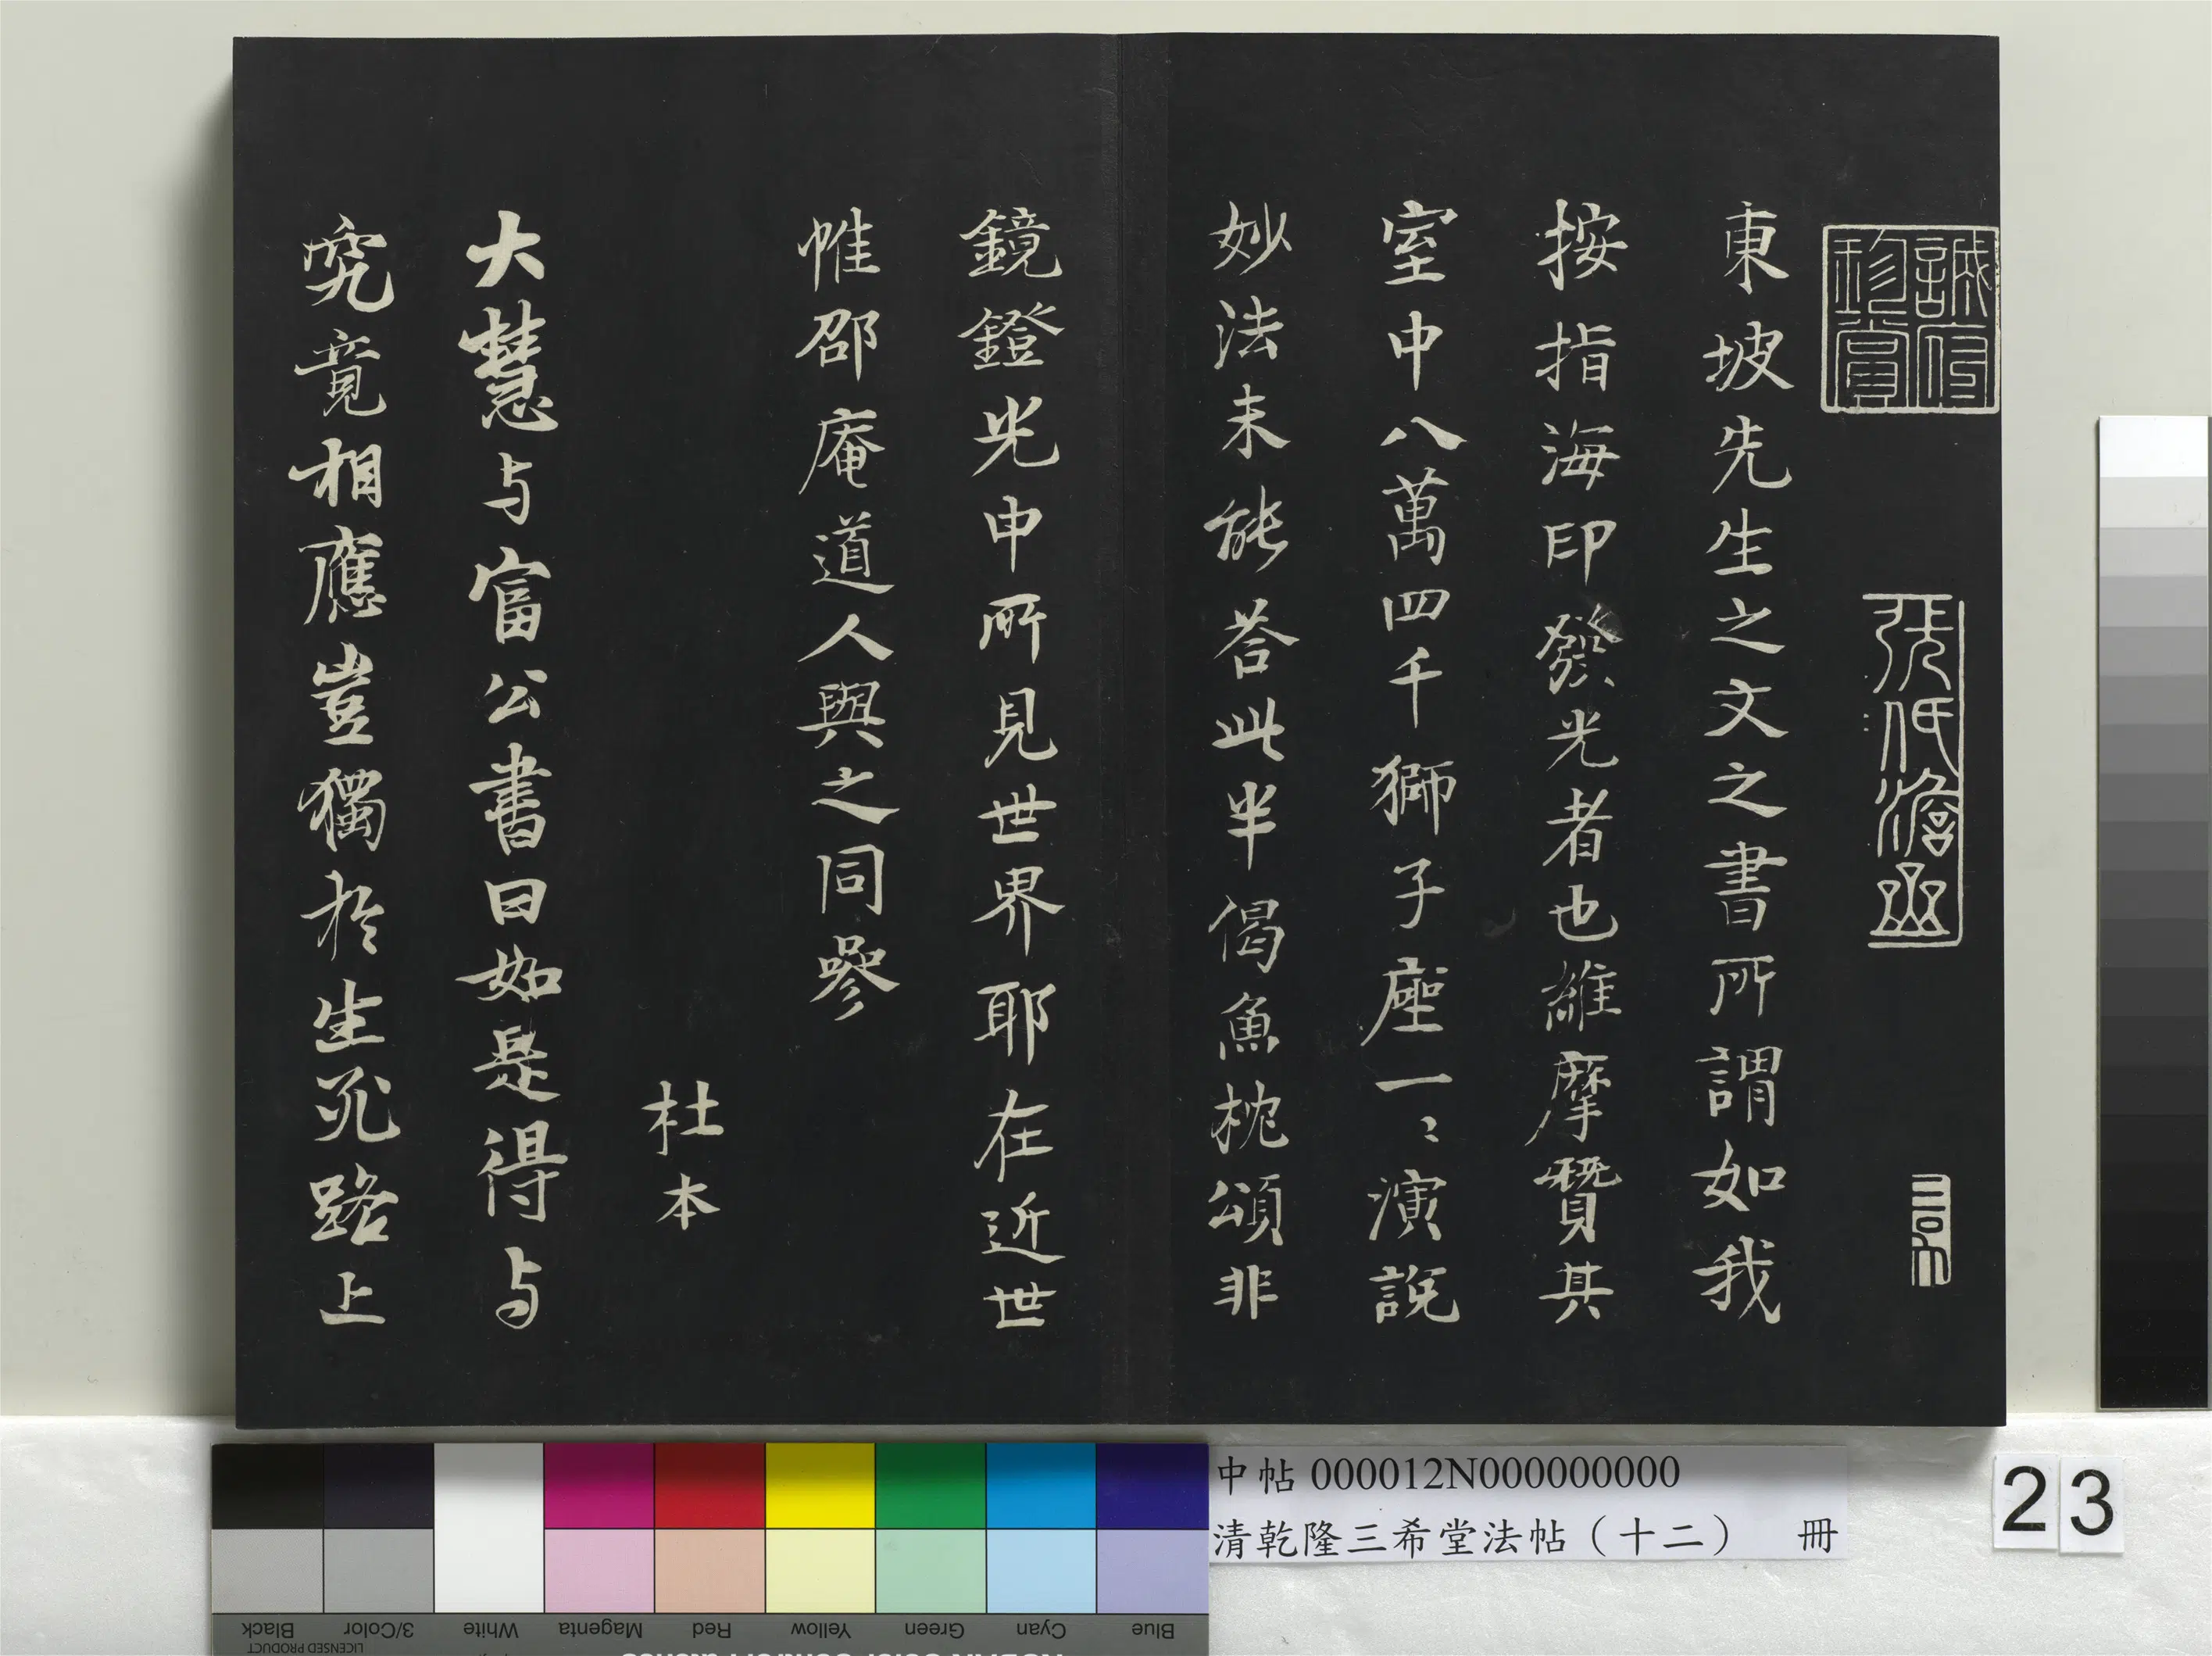 誠府珍賞
東坡先生之文之書所謂如我
按指海印發光者也維摩贊其
室中八萬四千獅子座一〻演說
妙法未能荅此半偈魚枕頌非
鏡鐙光中所見世界耶在近世
惟邵庵道人與之同參
杜本
大慧与富公書曰如是得与
究竟相應豈獨於生死路上
中帖 000012N000000000
清乾隆三希堂法帖（十二） 冊
23
Black
3/Color
White
Magenta
Red
Yellow
Green
Cyan
Blue
LICENSED PRODUCT